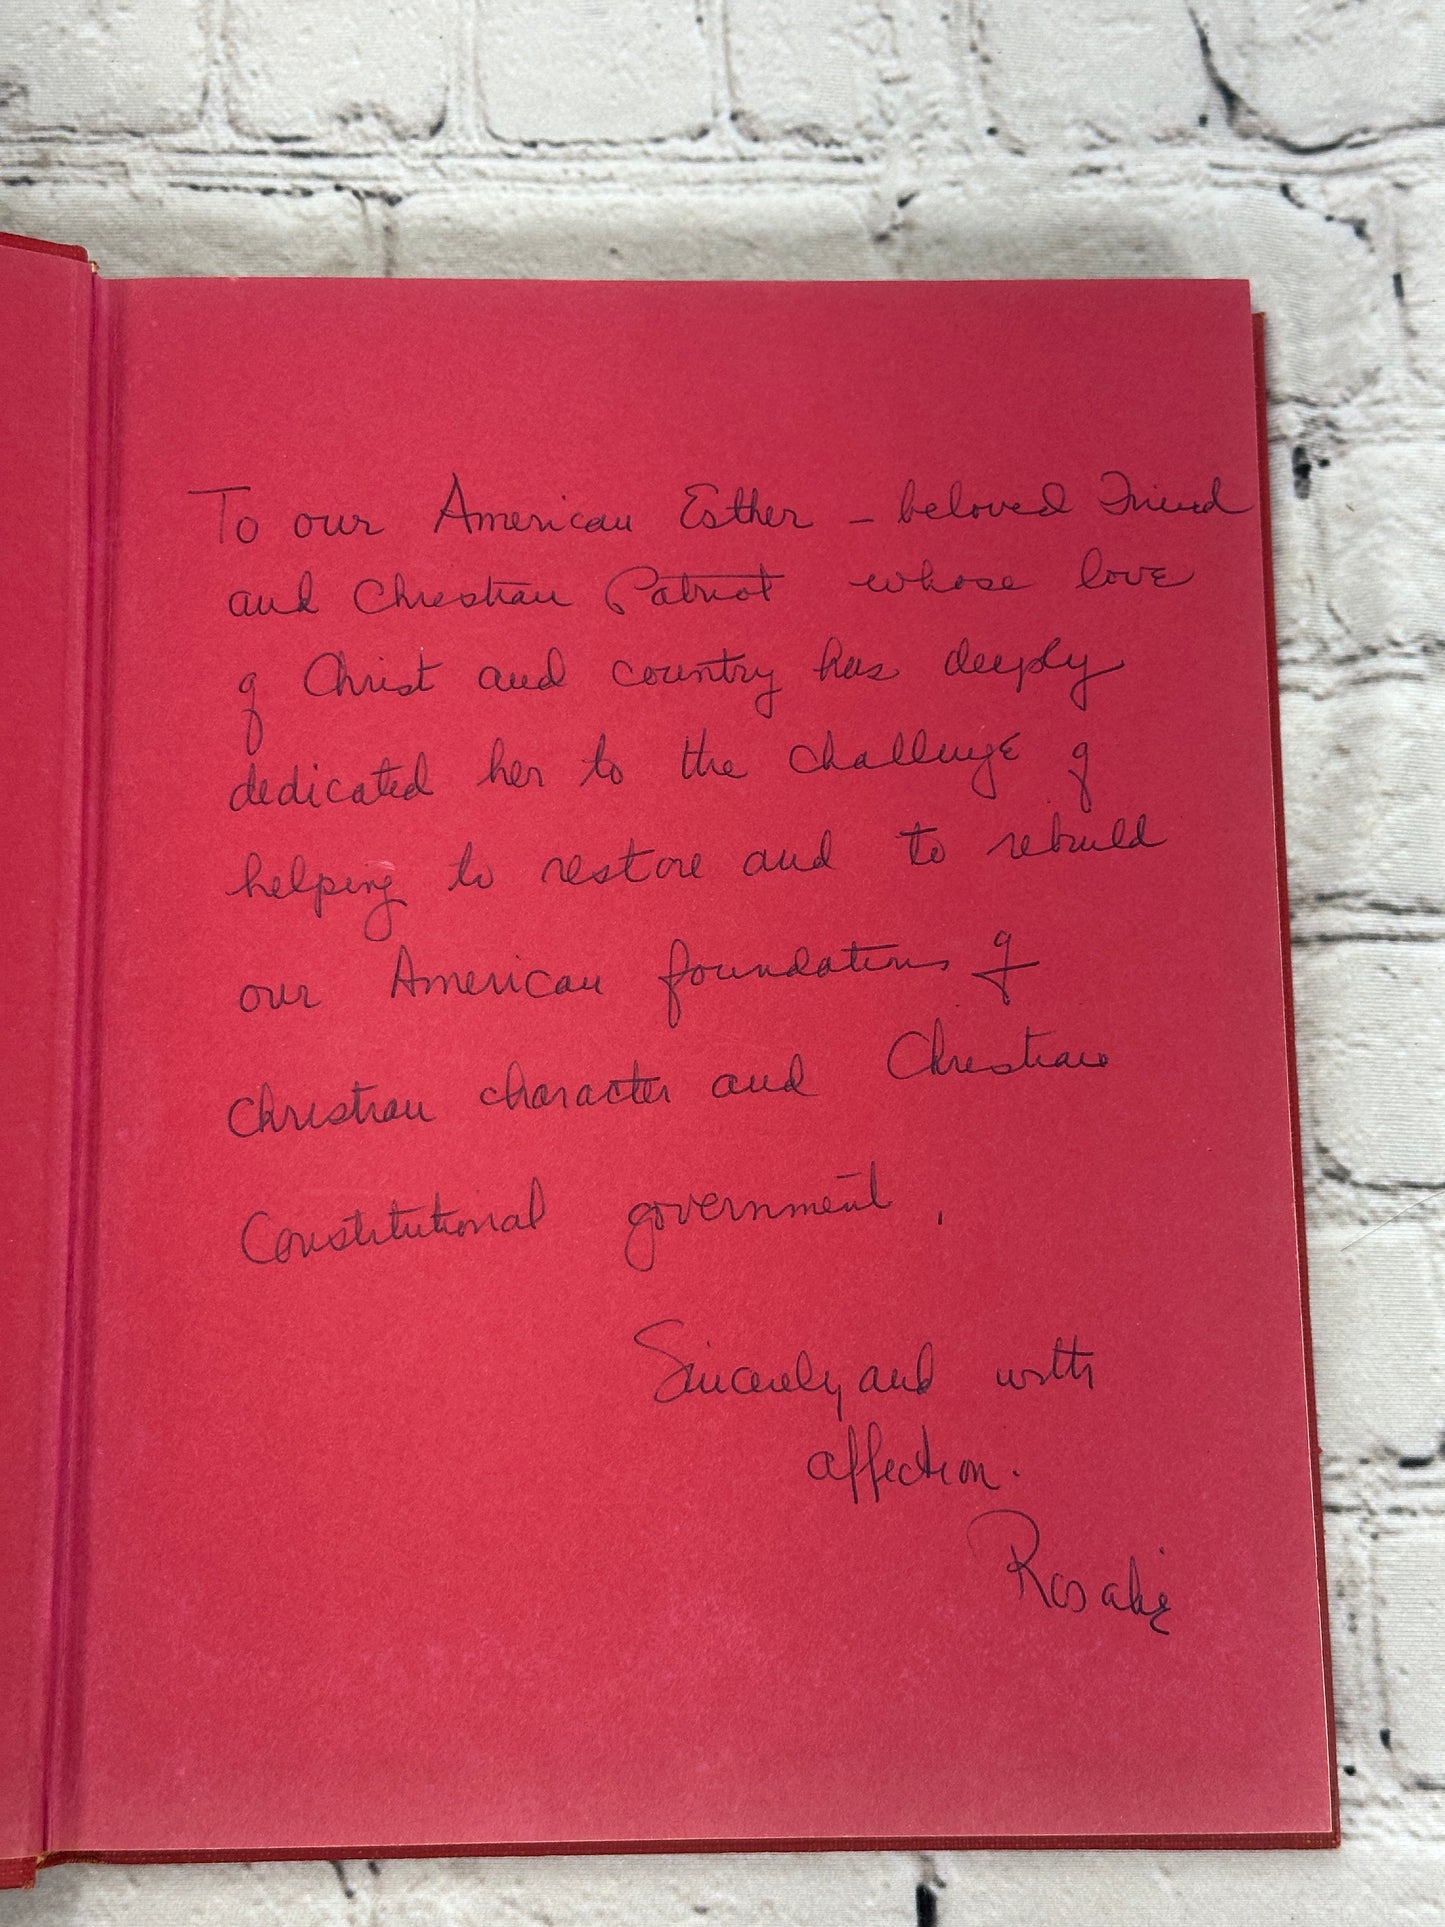 To our American Esther – beloved Friend
and Christian Patriot whose love
of Christ and country has deeply
dedicated her to the challenge of
helping to restore and to rebuild
our American foundations of
Christian character and Christian
Constitutional government.
Sincerely and with
affection.
Rosalie